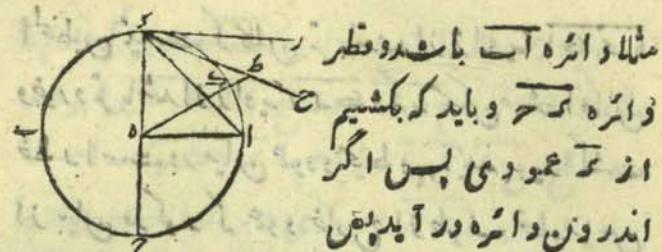 مثلا دائره اب باشد و قطر
دائره ج ح و باید که بکشیم
از ج عمودی پس اگر
اندرون دائره در آید پس
ر
ط
ح
ب
ه
ا